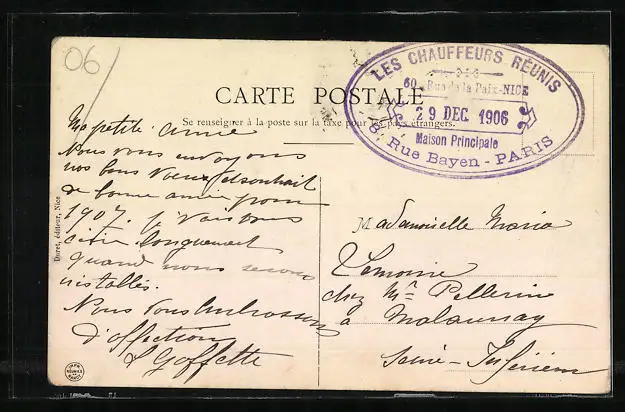 06
CARTE POSTALE
Se renseigner à la poste sur la taxe pour les pays étrangers.
LES CHAUFFEURS RÉUNIS
60, Rue de la Paix-NICE
29 DEC. 1906
Maison Principale
8, Rue Bayen - PARIS
Ma petite amie
Nous vous envoyons
nos bons vœux et souhait
de bonne année pour
1907. je vais vous
écrire longuement
quand nous serons
installés.
Nous vous embrassons
d'affection
Goffette
Mademoiselle Maria
Lemoine
chez Mr Pellerin
à Malaunay
Seine-Inférieure
Duret, éditeur, Nice